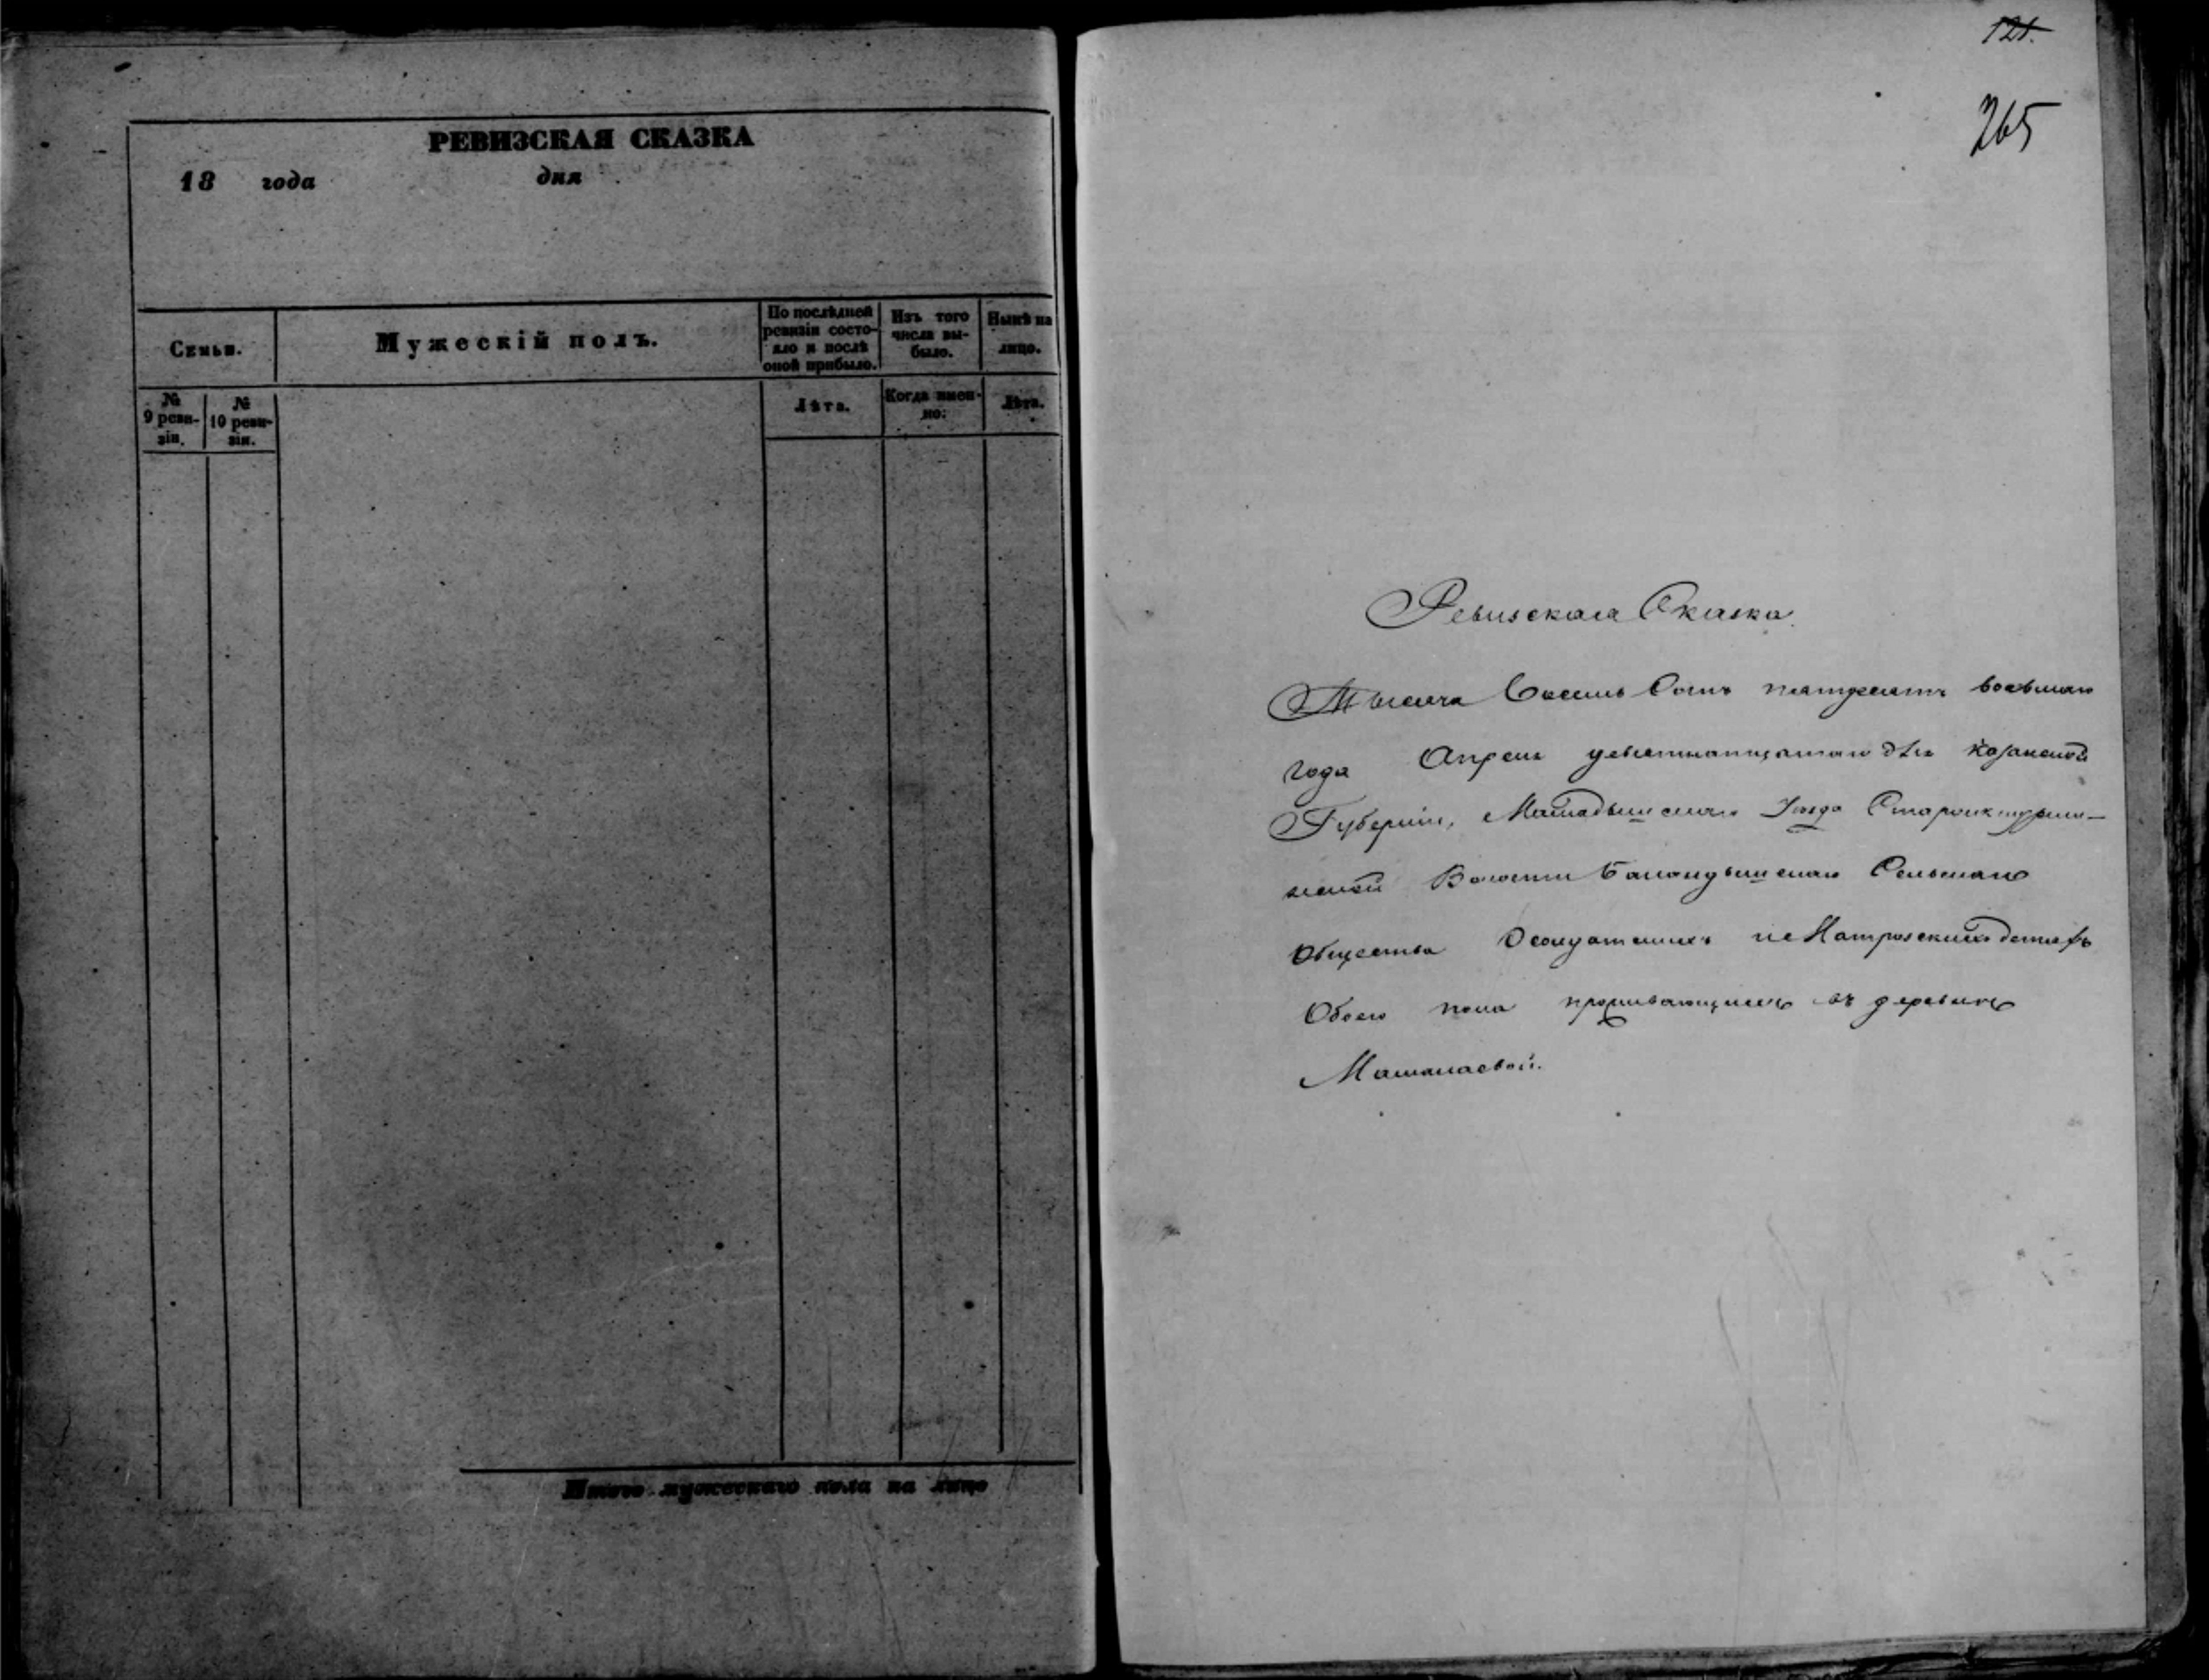 РЕВИЗСКАЯ СКАЗКА
18 года дня
Семьи.
Мужескій полъ.
По послѣдней ревизіи состояло и послѣ оной прибыло.
Изъ того числа выбыло.
Нынѣ на лицо.
№ 9 ревизіи.
№ 10 ревизіи.
Лѣта.
Когда именно:
Лѣта.
Итого мужескаго пола на лицо
121.
265
Ревизская Сказка.
Тысяча Восемь Сотъ пятдесятъ восьмаго
года Апреля девятнатцатаго дня Казанской
Губерніи, Мамадышскаго Уезда
Волости Сельскаго
Общества и Матросскихъ детяхъ
Обоего пола проживающихъ въ деревне